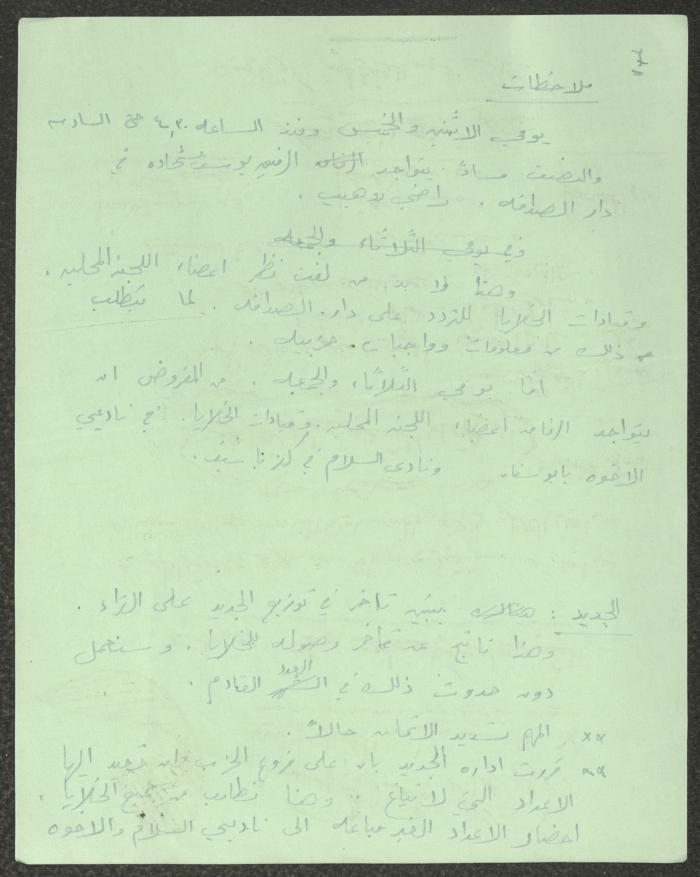 ملاحظات
يومي الاثنين والخميس ومنذ الساعه ٤,٣٠ حتى السادسه
والنصف مساءً يتواجد الرفيق يوسف شحاده في
دار الصداقه . راضي وهيب .
وفي يومي الثلاثاء والجمعه
وهنا لا بد من لفت نظر اعضاء اللجنه المحليه .
وقيادات الخلايا للتردد على دار الصداقه . لما يتطلب
ذلك من معلومات وواجبات حزبيه .
اما يومي الثلاثاء والجمعه . من المفروض ان
يتواجد الرفاق اعضاء اللجنه المحليه وقيادات الخلايا . في ناديي
الاخوه ونادي السلام في
الجديد : هنالك تأخر في توزيع الجديد على القراء .
وهذا ناتج عن تأخر وصوله للخلايا . وسنعمل
دون حدوث ذلك في الشهر العدد القادم .
×× المهم تسديد الاثمان حالاً .
×× قررت اداره الجديد بان على فروع الحزب ان تعيد اليها
الاعداد التي لا تباع .. وهنا نطلب من جميع الخلايا
احضار الاعداد الغير مباعه الى ناديي السلام والاخوه